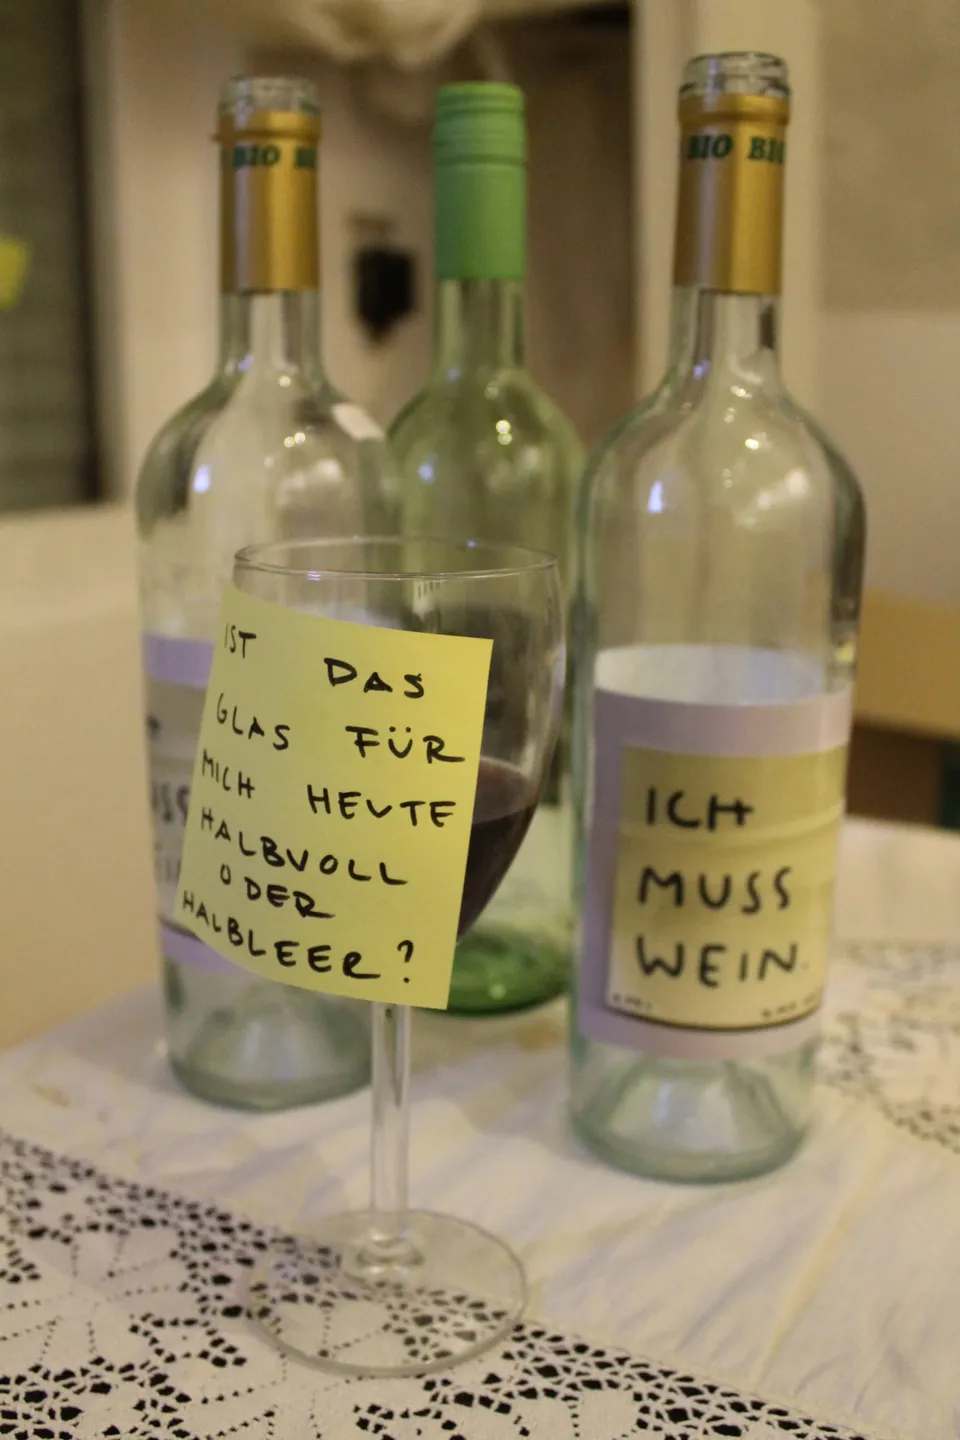 BIO
BIO
IST DAS
GLAS FÜR
MICH HEUTE
HALBVOLL
ODER
HALBLEER?
ICH
MUSS
WEIN.